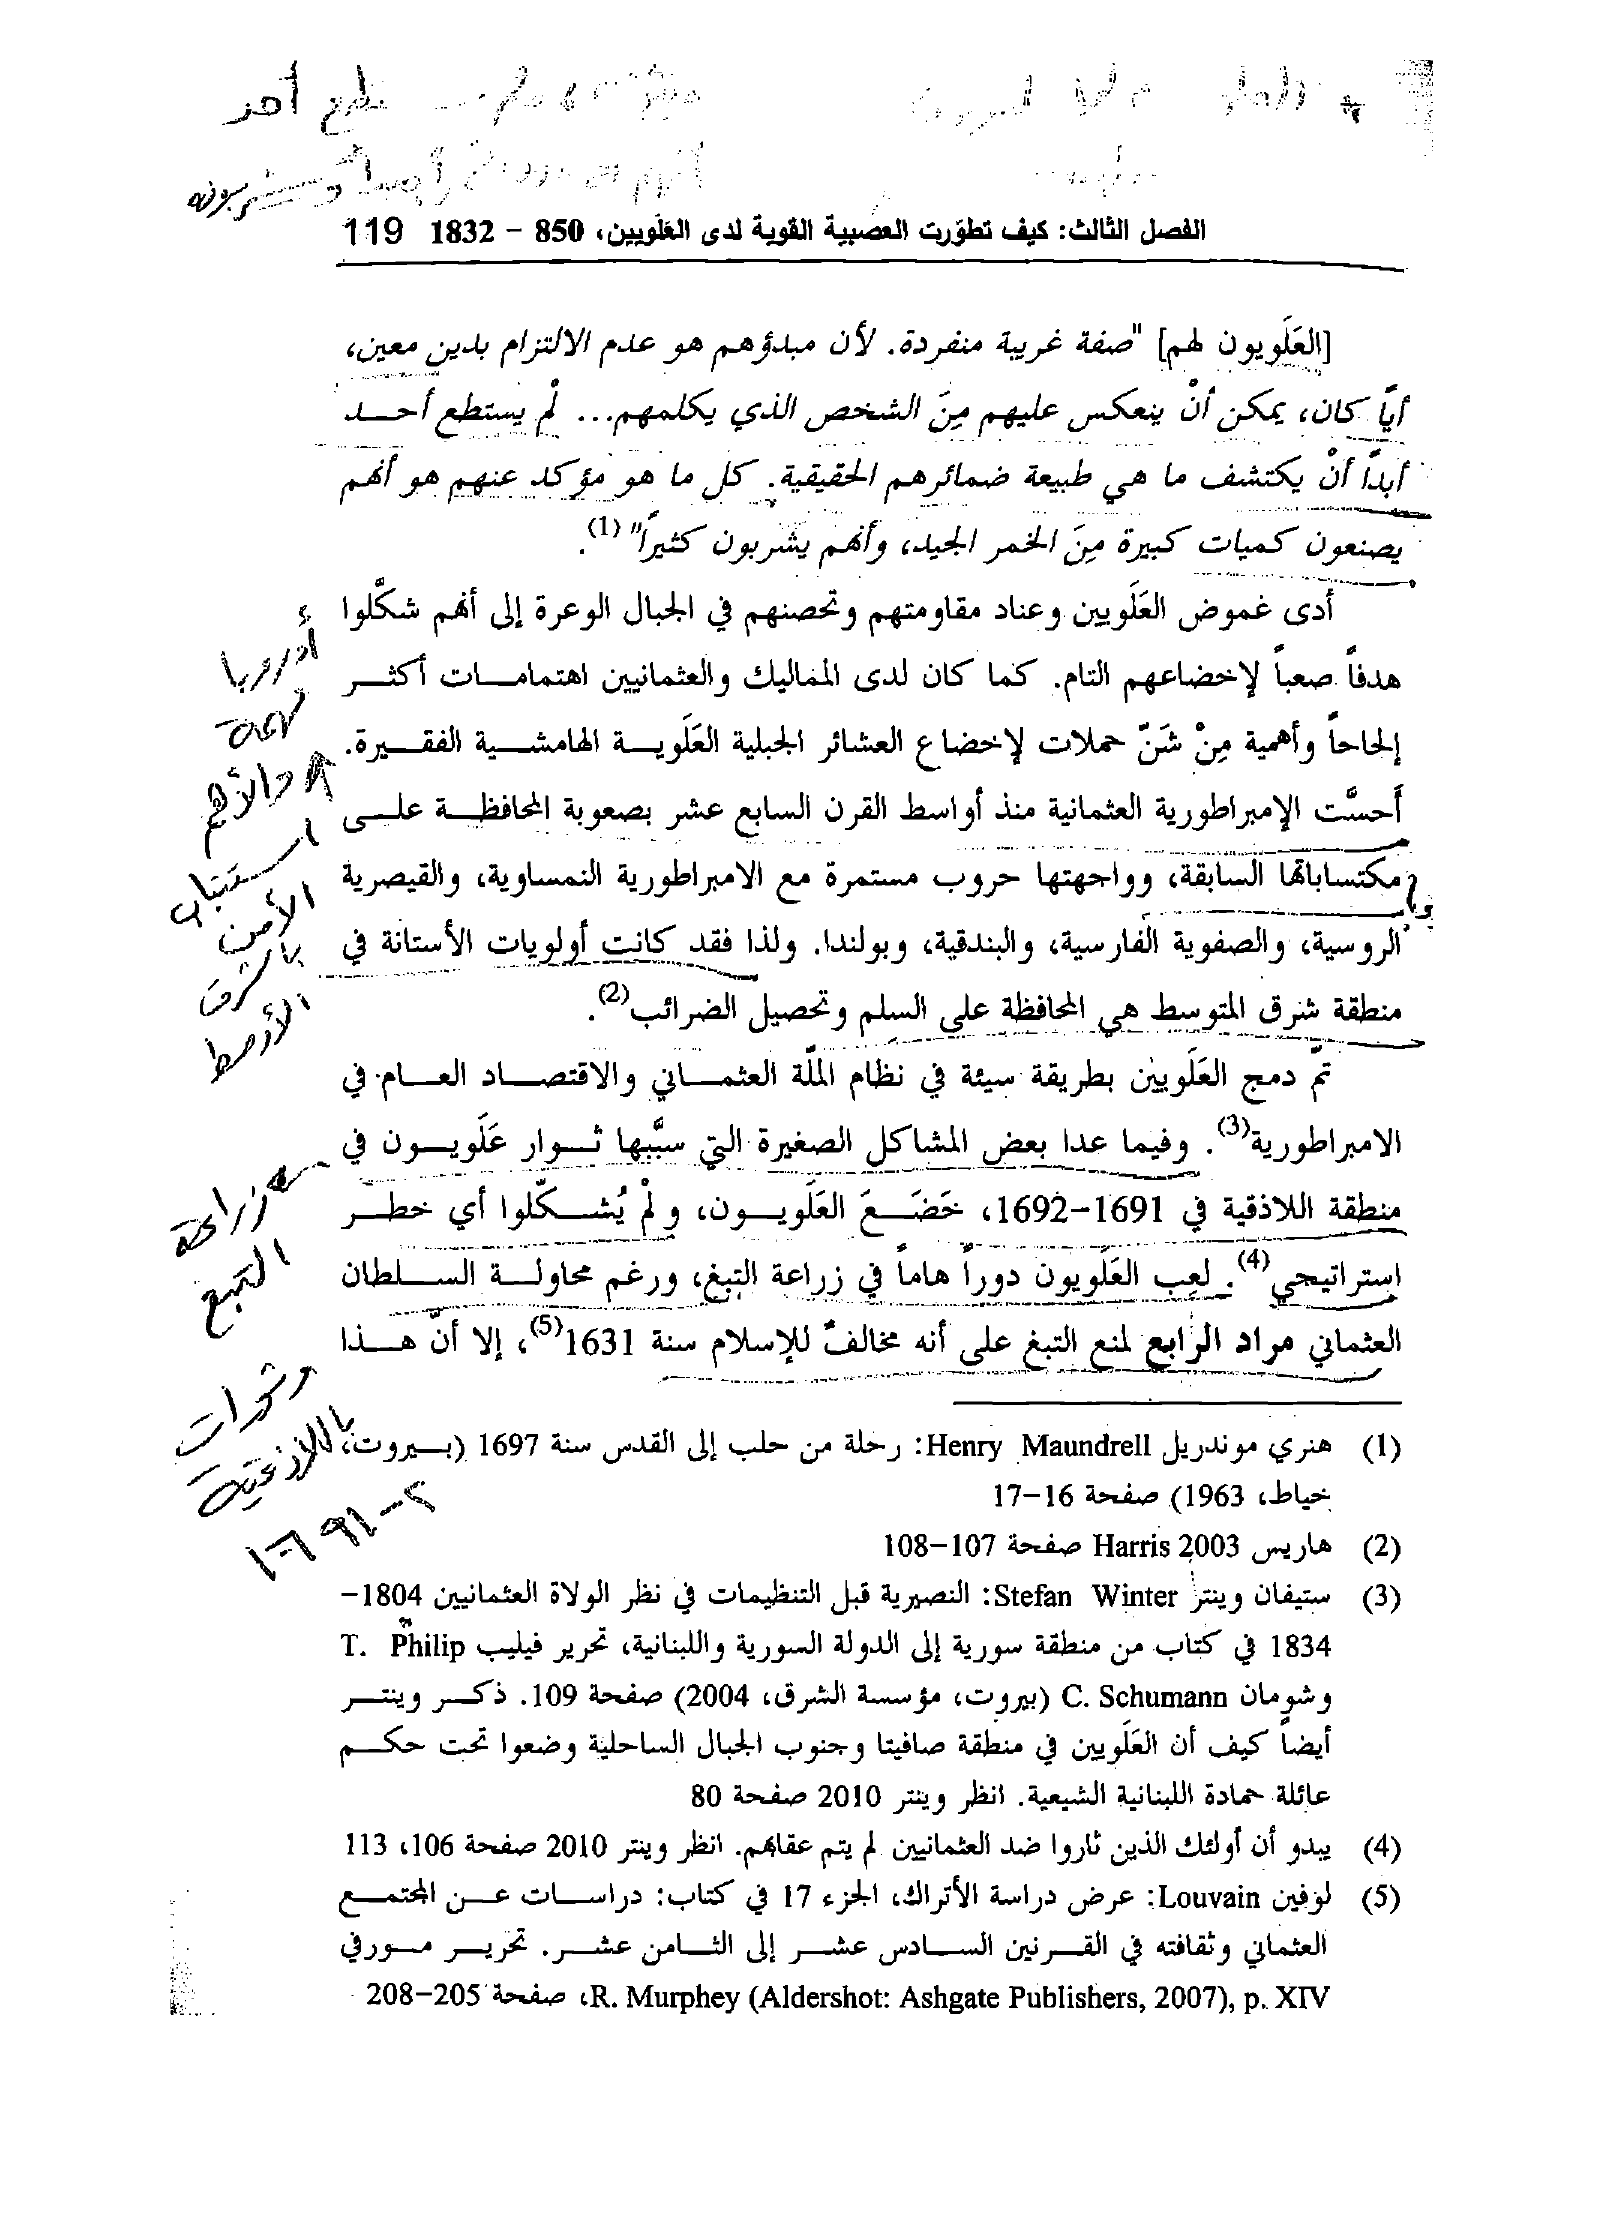 أحد
يشربون
الفصل الثالث: كيف تطوّرت العصبية القوية لدى العَلَويين، 850 - 1832 119
[العَلَويون لهم] "صفة غريبة منفردة. لأن مبدؤهم هو عدم الالتزام بدين معين،
أياً كان، يمكن أنْ ينعكس عليهم مِنَ الشخص الذي يكلمهم... لْم يستطع أحـــد
أبداً أنْ يكتشف ما هي طبيعة ضمائرهم الحقيقية. كل ما هو مؤكد عنهم هو أنهم
يصنعون كميات كبيرة مِنَ الخمر الجيد، وأنهم يشربون كثيراً"(1).
أدى غموض العَلَويين وعناد مقاومتهم وتحصنهم في الجبال الوعرة إلى أنهم شكّلوا
هدفاً صعباً لإخضاعهم التام. كما كان لدى المماليك والعثمانيين اهتمامـات أكثـر
إلحاحاً وأهمية مِنْ شَنّ حملات لإخضاع العشائر الجبلية العَلَويـة الهامشـية الفقـيرة.
أحسَّت الإمبراطورية العثمانية منذ أواسط القرن السابع عشر بصعوبة المحافظـة علـى
مكتساباتها السابقة، وواجهتها حروب مستمرة مع الامبراطورية النمساوية، والقيصرية
الروسية، والصفوية الفارسية، والبندقية، وبولندا. ولذا فقد كانت أولويات الأستانة في
منطقة شرق المتوسط هي المحافظة على السلم وتحصيل الضرائب(2).
تمّ دمج العَلَويين بطريقة سيئة في نظام الملّة العثمـاني والاقتصـاد العـام في
الامبراطورية(3). وفيما عدا بعض المشاكل الصغيرة التي سبَّبها ثـوار عَلَويـون في
منطقة اللاذقية في 1691-1692، خَضَـعَ العَلَويـون، ولْم يُشـكّلوا أي خطـر
استراتيجي(4). لعِب العَلَويون دوراً هاماً في زراعة التبغ، ورغم محاولـة السـلطان
العثماني مراد الرابع لمنع التبغ على أنه مخالفٌ للإسلام سنة 1631(5)، إلا أنّ هـذا
أوروبا
والأهم
استتباب
الأمن
بالشرق
الأوسط
زراعة
التبغ
وثورات
باللاذقية
١٦٩١-٢
(1) هنري موندريل Henry Maundrell: رحلة من حلب إلى القدس سنة 1697 (بـيروت،
خياط، 1963) صفحة 16-17
(2) هاريس Harris 2003 صفحة 107-108
(3) ستيفان وينتر Stefan Winter: النصيرية قبل التنظيمات في نظر الولاة العثمانيين 1804-
1834 في كتاب من منطقة سورية إلى الدولة السورية واللبنانية، تحرير فيليب T. Philip
وشومان C. Schumann (بيروت، مؤسسة الشرق، 2004) صفحة 109. ذكـر وينتـر
أيضاً كيف أن العَلَويين في منطقة صافيتا وجنوب الجبال الساحلية وضعوا تحت حكـم
عائلة حمادة اللبنانية الشيعية. انظر وينتر 2010 صفحة 80
(4) يبدو أن أولئك الذين ثاروا ضد العثمانيين لم يتم عقابهم. انظر وينتر 2010 صفحة 106، 113
(5) لوفين Louvain: عرض دراسة الأتراك، الجزء 17 في كتاب: دراسـات عـن المجتمـع
العثماني وثقافته في القـرنين السـادس عشـر إلى الثـامن عشـر. تحريـر مـورفي
R. Murphey (Aldershot: Ashgate Publishers, 2007), p. XIV، صفحة 205-208